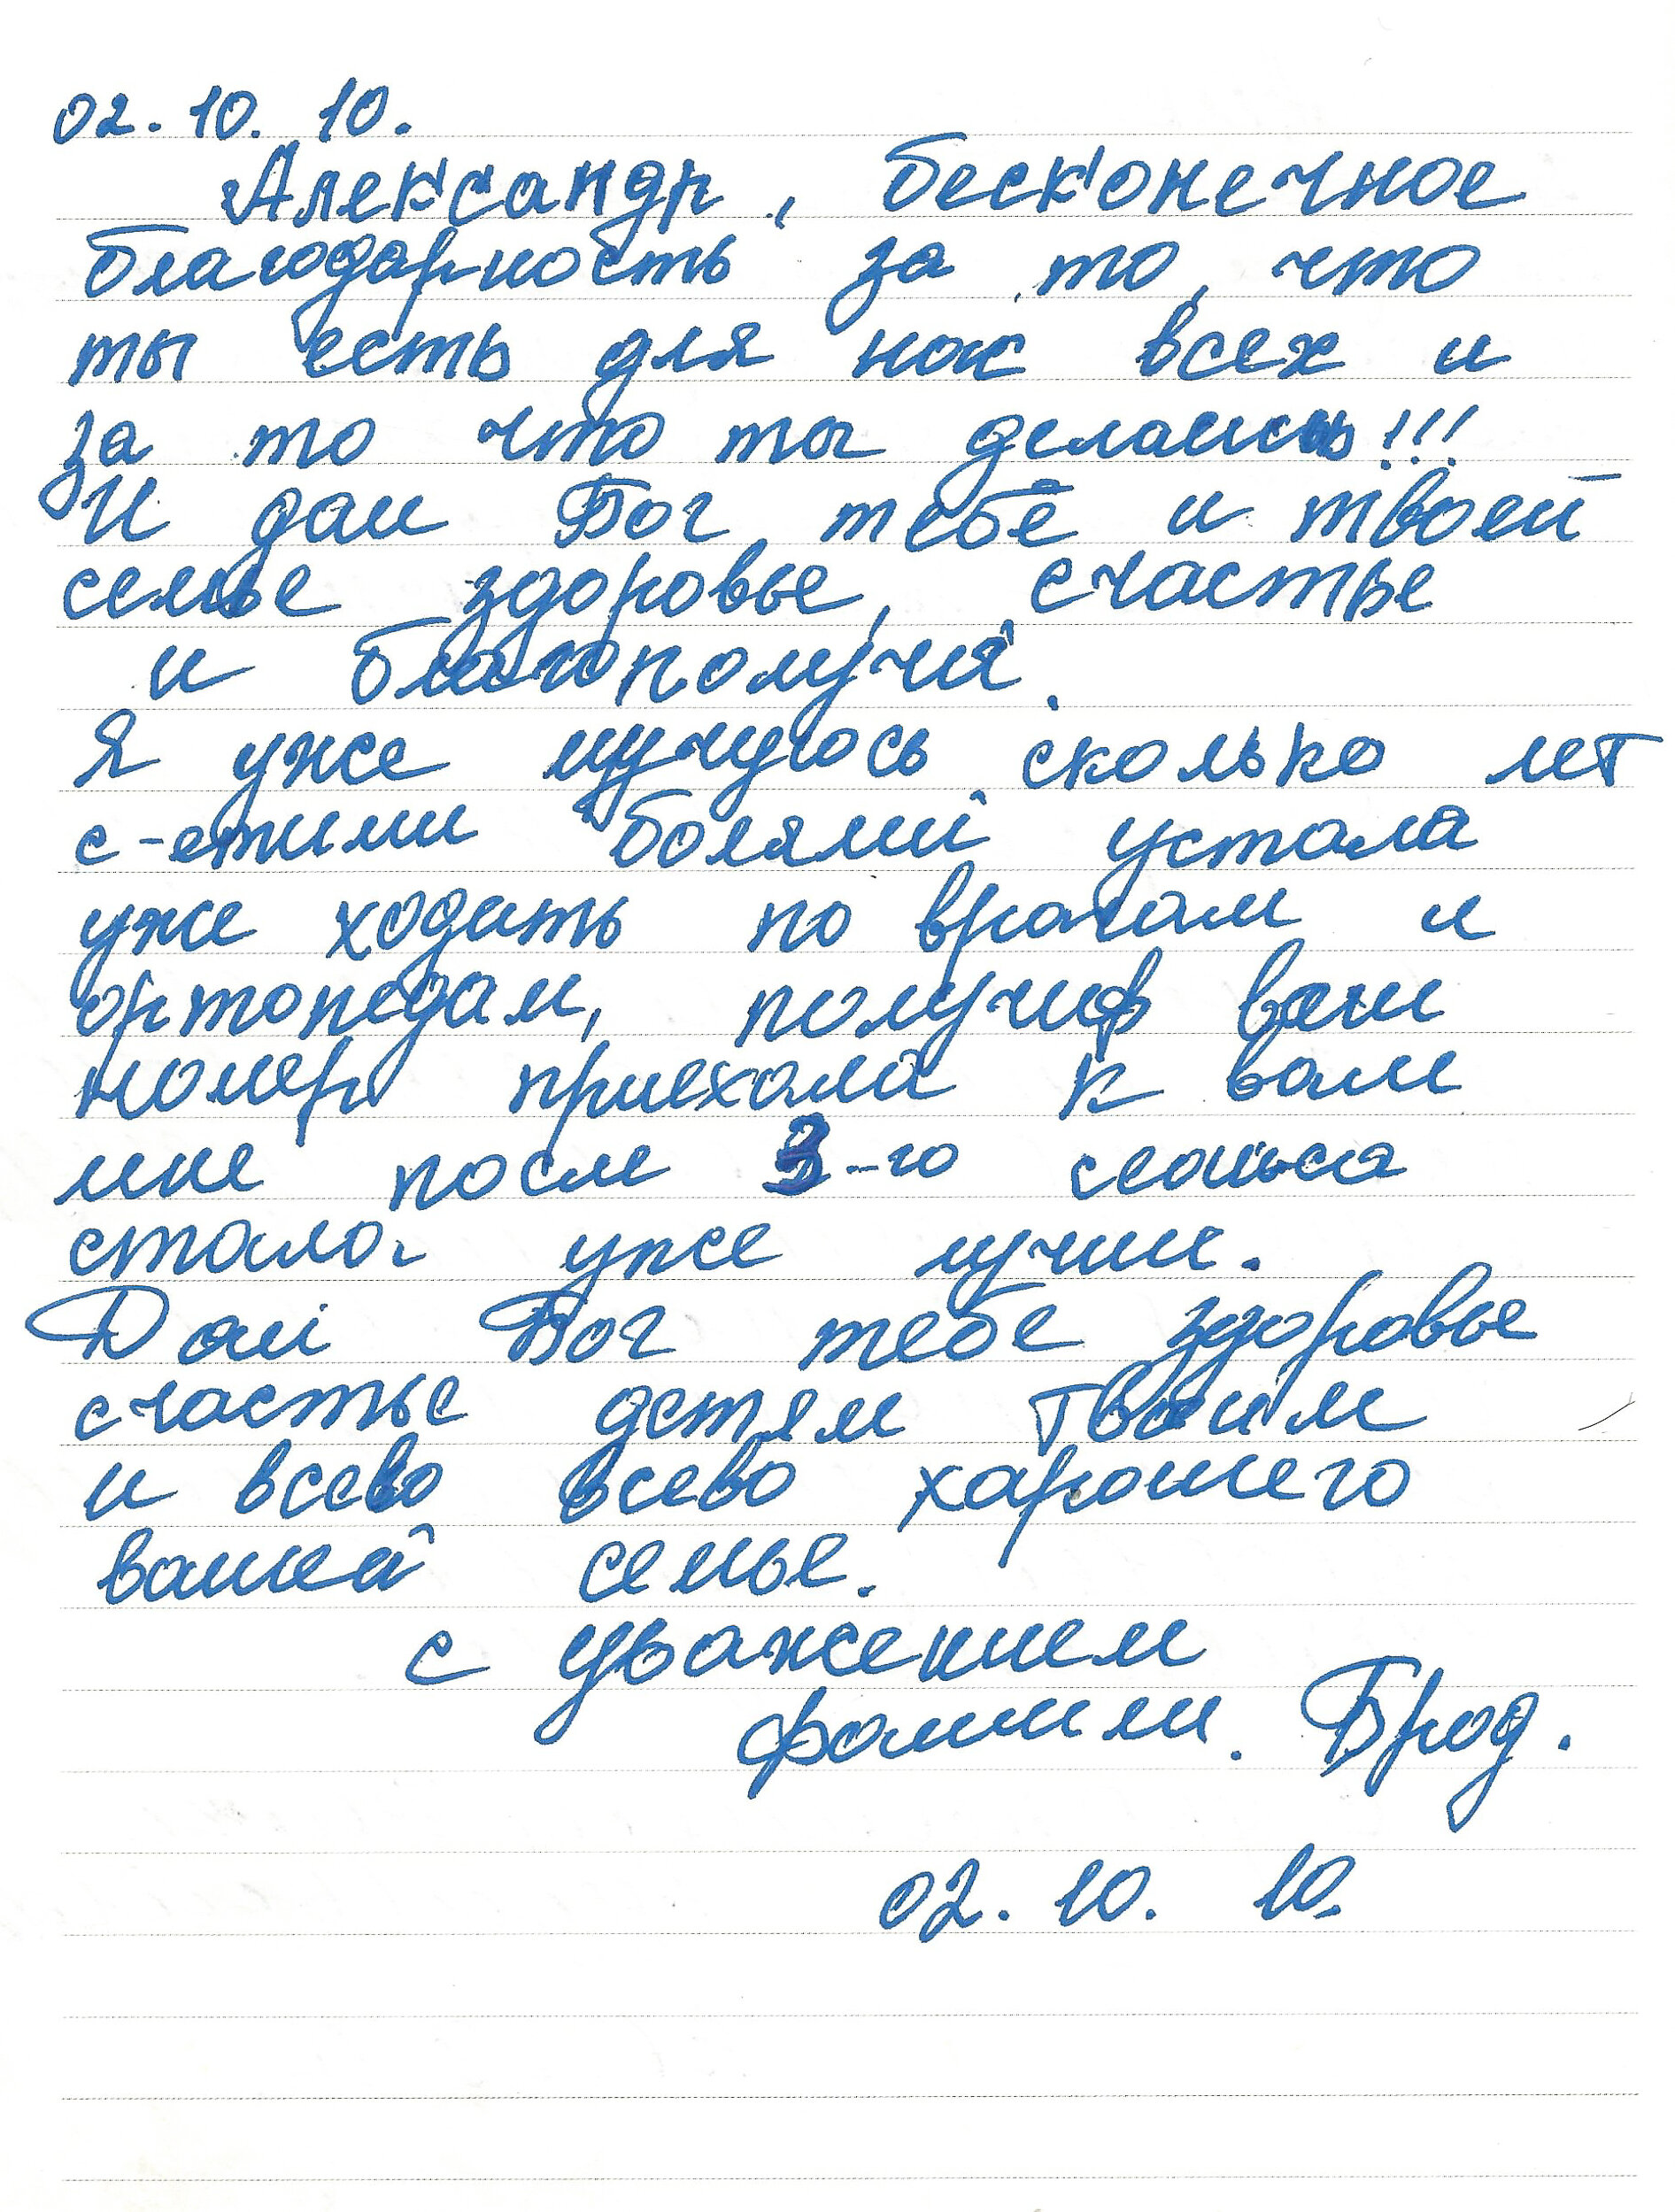 02.10.10.
Александр, бесконечное
благодарность за то, что
ты есть для нас всех и
за то что ты делаешь!!!
И даи Бог тебе и твоей
семье здоровье, счастье
и благополучия.
Я уже мучуюсь сколько лет
с-етими болями устала
уже ходить по врачам и
ортопедам, получив ваш
номер приехала к вам
мне после 3-го сеанса
стало уже лучше.
Дай Бог тебе здоровье
счастье детям твоим
и всево всево харошего
вашей семье.
с уважением
фамили. Брод.
02.10.10.